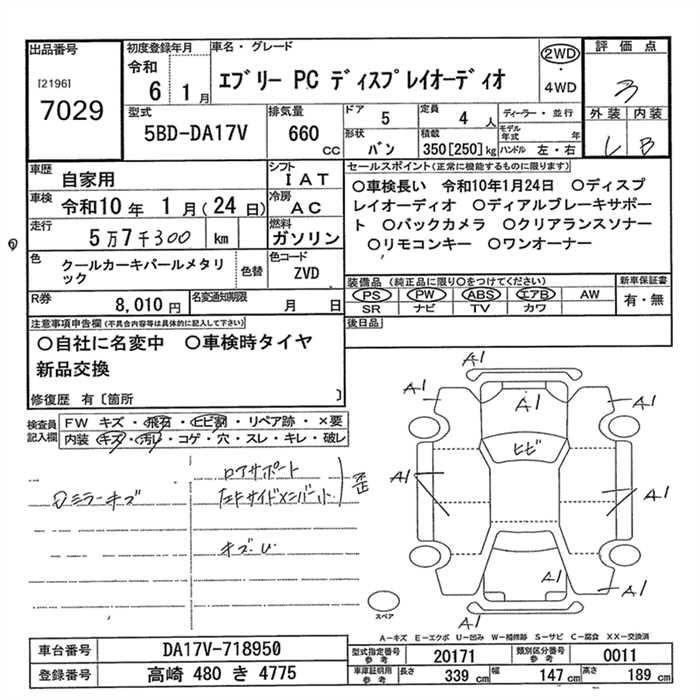 出品番号
[2196]
7029
初度登録年月
令和
6 1月
車名・グレード
エブリー PC ディスプレイオーディオ
2WD
・
4WD
評価点
3
外装 内装
B
型式
5BD-DA17V
排気量
660 CC
ドア 5
定員 4 人
形状 バン
積載 350[250]kg
ディーラー・並行
モデル年式 年
ハンドル 左・右
車歴 自家用
シフト IAT
車検 令和10年 1月(24日)
冷房 AC
走行 5万7千300 km
燃料 ガソリン
色 クールカーキパールメタリック
色替
色コード ZVD
R券 8,010円
名変通知期限 月 日
セールスポイント(正常に機能するものに限ります)
○車検長い 令和10年1月24日 ○ディスプ
レイオーディオ ○ディアルブレーキサポー
ト ○バックカメラ ○クリアランスソナー
○リモコンキー ○ワンオーナー
装備品 (純正品に限り○をつけてください)
PS PW ABS エアB AW
SR ナビ TV カワ
新車保証書
有・無
後日品
注意事項申告欄(不具合内容等は具体的に記入して下さい)
○自社に名変中 ○車検時タイヤ
新品交換
修復歴 有〔箇所 〕
検査員
記入欄
FW キズ・飛石・ヒビ割・リペア跡・×要
内装 キズ・汚れ・コゲ・穴・スレ・キレ・破レ
ミラーキズ
コアサポート
左Fサイドメンバー小
歪
キズU
A1
A1
A1
A1
ヒビ
A1
A1
A1
A1
A1
スペア
A-キズ E-エクボ U-凹み W-補修跡 S-サビ C-腐食 XX-交換済
車台番号 DA17V-718950
登録番号 高崎 480 き 4775
型式指定番号 参考 20171
類別区分番号 参考 0011
車庫証明用 参考 長さ 339 cm 幅 147 cm 高さ 189 cm